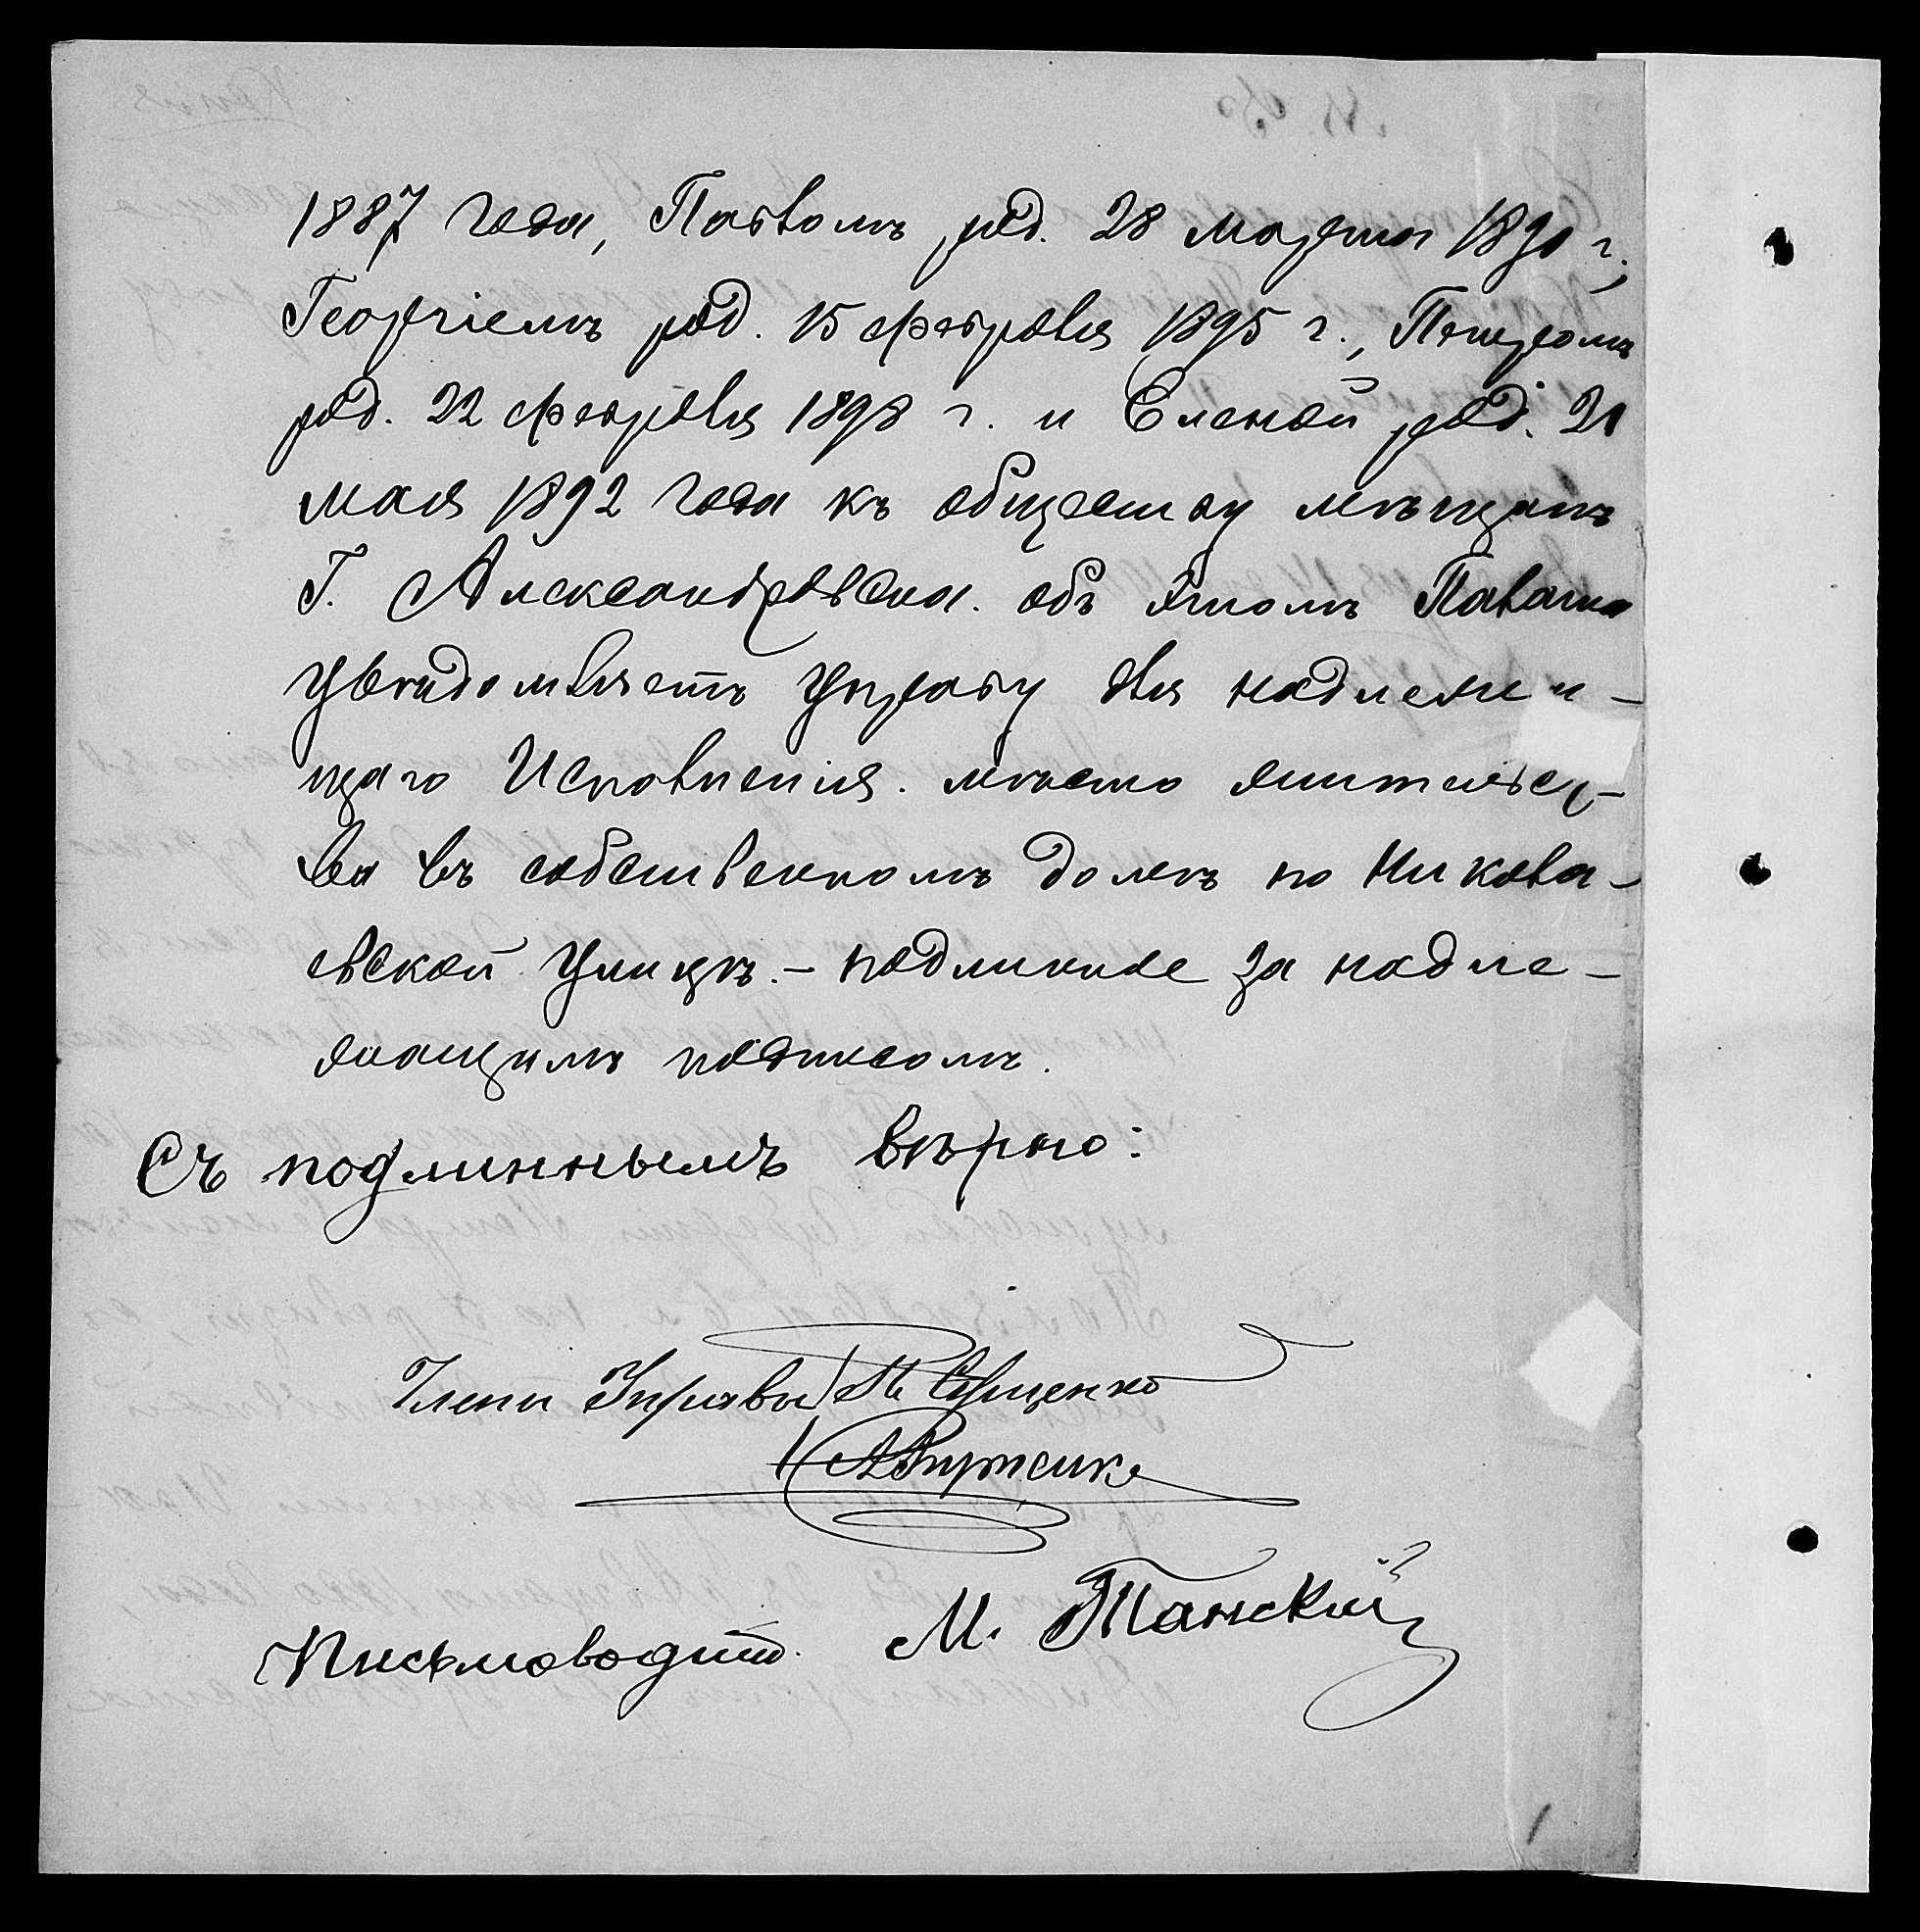 1887 года, Павломъ род. 28 марта 1890 г.,
Георгіемъ род. 15 февраля 1895 г., Петромъ
род. 22 февраля 1898 г. и Еленой род. 21
мая 1892 года къ обществу мѣщанъ
Г. Александровска. объ этомъ Палата
увѣдомляетъ Управу для надлежа-
щаго Исполненія. мѣсто жительст-
ва въ собственномъ домѣ по Никола-
евской улицѣ. – подлинное за надле-
жащимъ подписомъ.
Съ подлиннымъ вѣрно:
Члены Управы
Письмоводит. М. Танскій